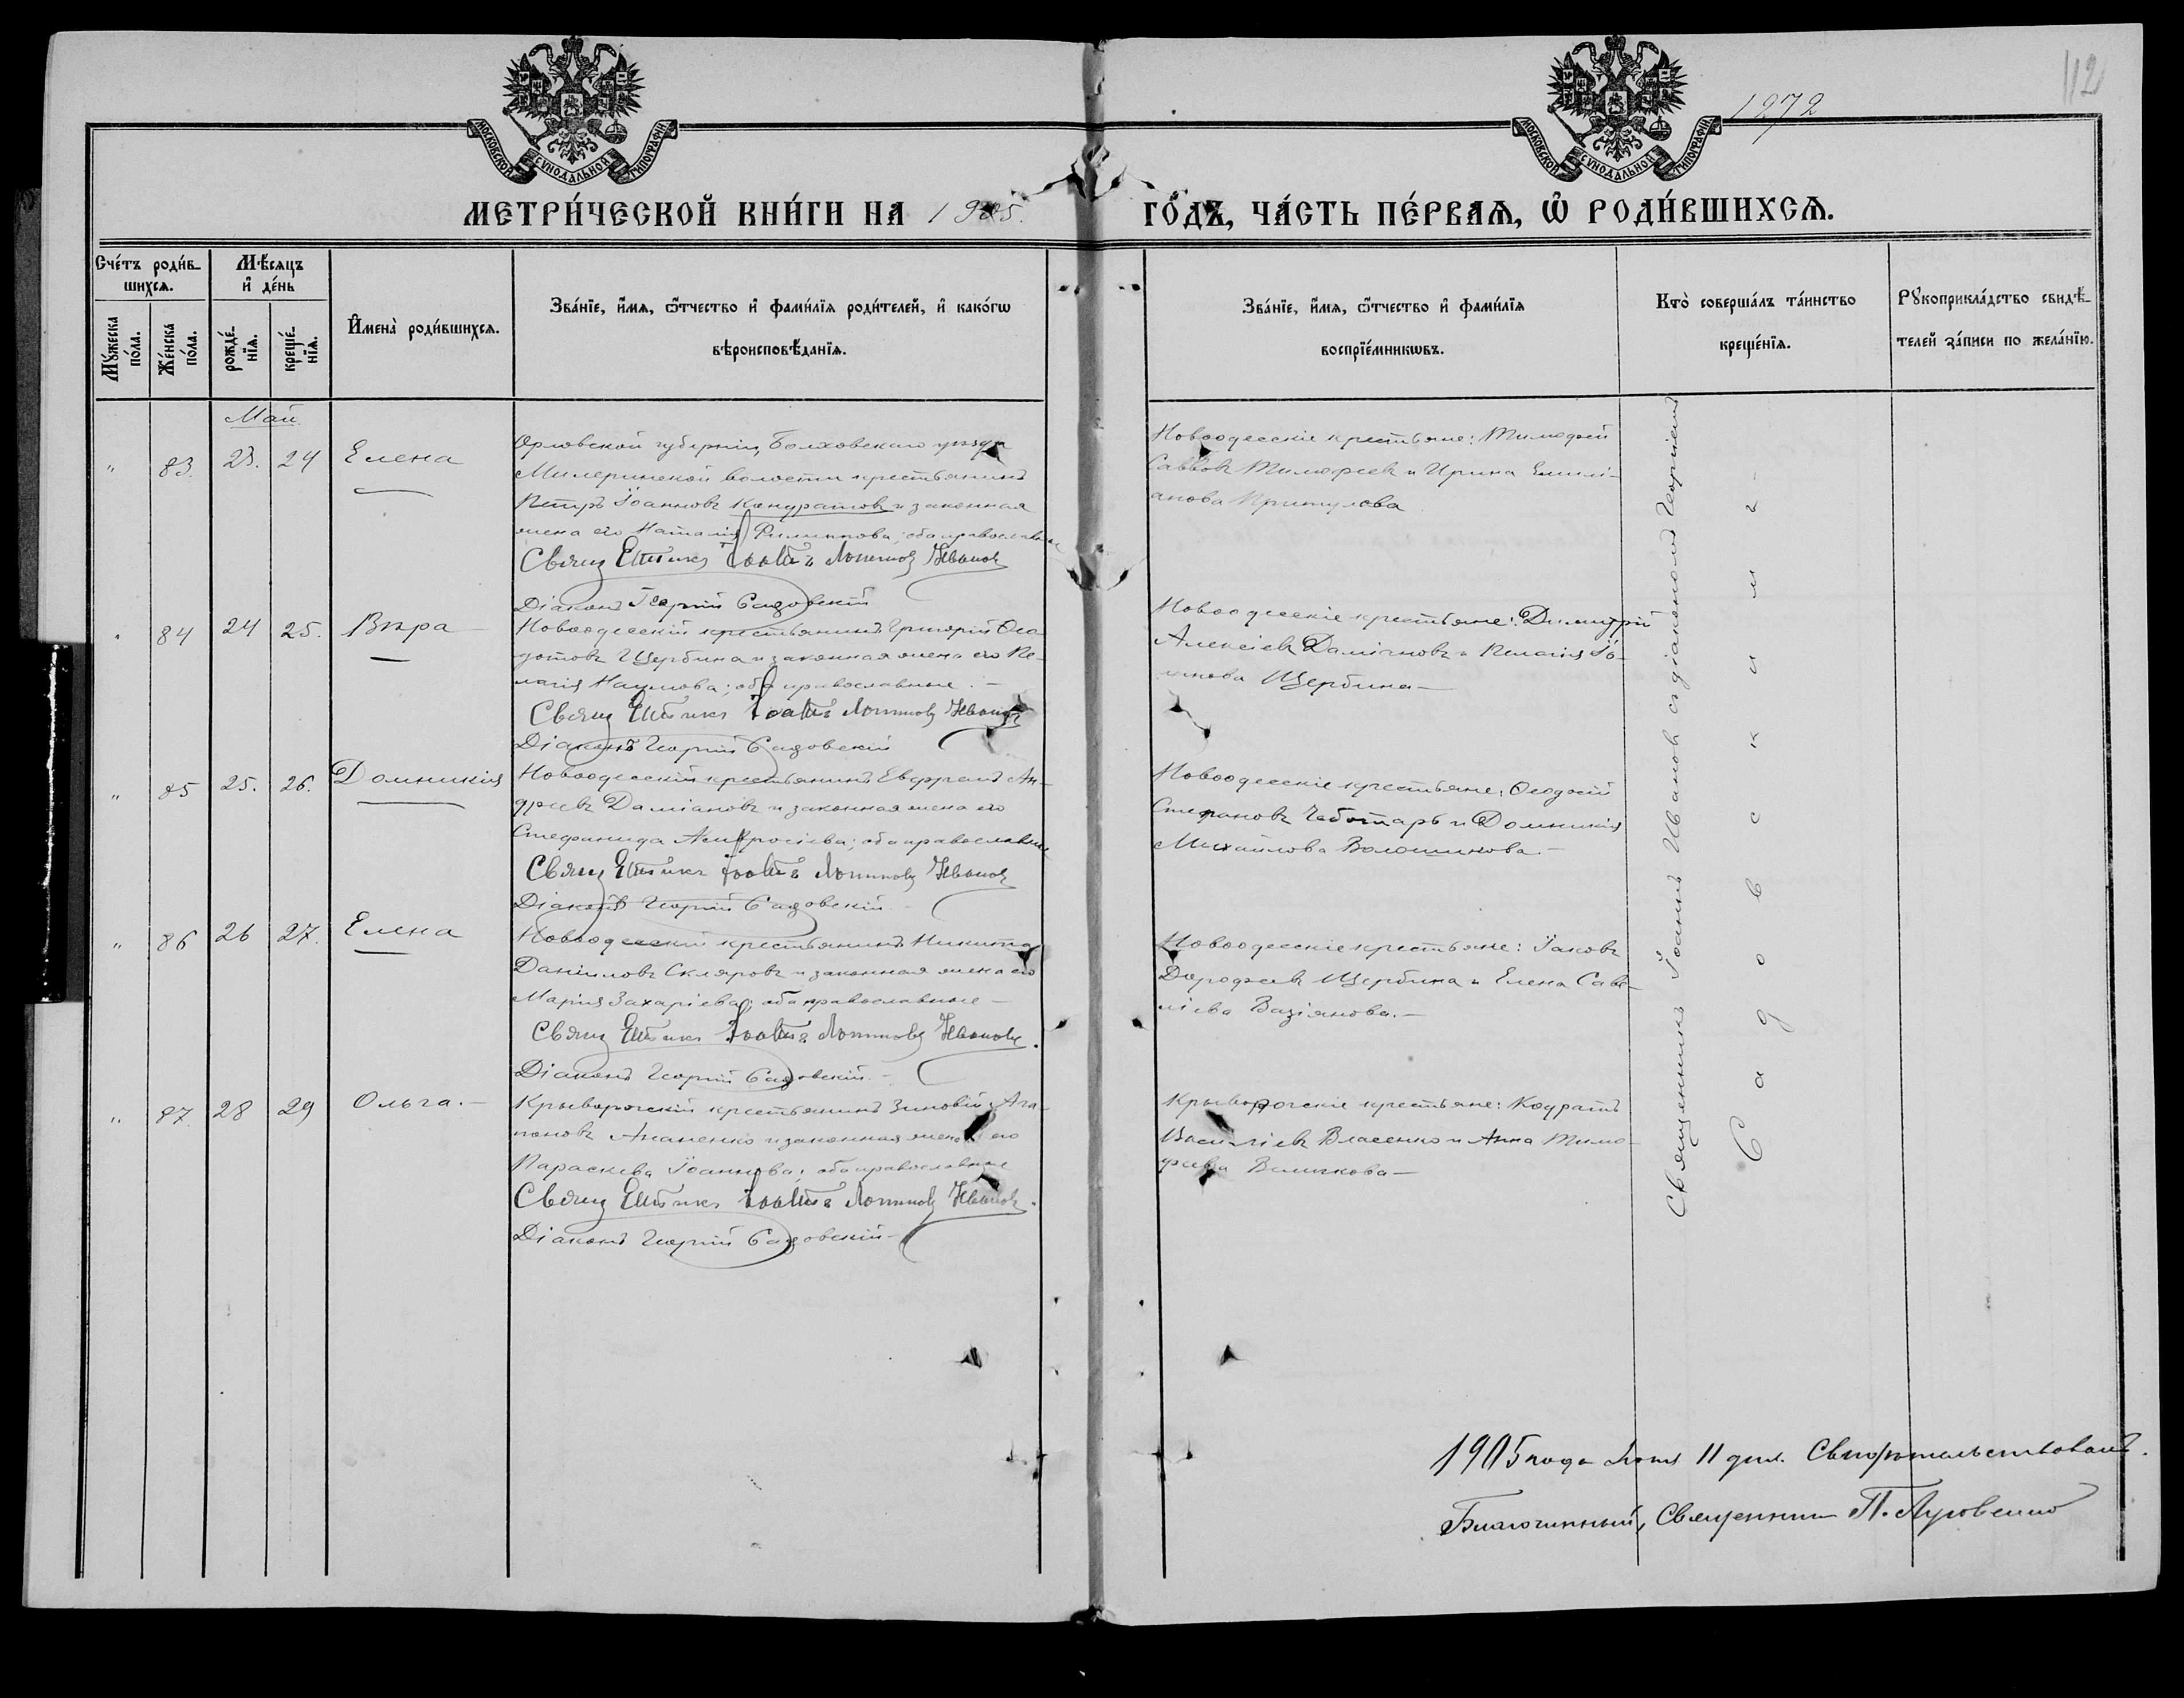 112
1272
МОСКОВСКОЙ СѴНОДАЛЬНОЙ ТИПОГРАФІИ
МОСКОВСКОЙ СѴНОДАЛЬНОЙ ТИПОГРАФІИ
МЕТРИ́ЧЕСКОЙ КНИ́ГИ НА 1905. ГО́ДЪ, ЧА́СТЬ ПЕ́РВАѦ, Ѽ РОДИ́ВШИХСѦ.
Сче́тъ роди́в-
шихсѧ.
Мѣ́сѧцъ
и҆ де́нь
Мꙋ́жеска
по́ла.
Же́нска
по́ла.
рожде́-
нїѧ.
креще́-
нїѧ.
И҆мена̀ роди́вшихсѧ.
Зва́нїе, и҆́мѧ, ѻ҆́тчество и҆ фами́лїѧ роди́телей, и҆ како́гѡ
вѣроисповѣ́данїѧ.
Зва́нїе, и҆́мѧ, ѻ҆́тчество и҆ фами́лїѧ
воспрїе́мникѡвъ.
Кто̀ соверша́лъ та́инство
креще́нїѧ.
Рꙋкоприкла́дство свидѣ́-
телей за́писи по жела́нїю.
Май
" 83. 23. 24 Елена
Орловской губерніи, Болховскаго уѣзда
Милеринской волости крестьянинъ
Петръ Іоанновъ Кондратовъ и законная
жена его Наталія Филиппова; оба православные
Свящ Іоаннъ Логиновъ Ивановъ
Діаконъ Георгій Садовскій
Новоодесскіе крестьяне: Тимофей
Саввовъ Тимофеевъ и Ирина Емилі-
анова Притулова
" 84 24 25. Вѣра
Новоодесскій крестьянинъ Григорій Ѳео-
дотовъ Щербина и законная жена его Пе-
лагія Наумова; оба православные. -
Свящ Іоаннъ Логиновъ Ивановъ
Діаконъ Георгій Садовскій
Новоодесскіе крестьяне: Димитрій
Алексіевъ Даміановъ и Пелагія Іо-
аннова Щербина -
" 85 25. 26. Домникія
Новоодесскій крестьянинъ Евфремъ Ан-
дреевъ Даміановъ и законная жена его
Стефанида Амвросіева; оба православные
Свящ Іоаннъ Логиновъ Ивановъ
Діаконъ Георгій Садовскій
Новоодесскіе крестьяне: Ѳеодосій
Стефановъ Чеботарь и Домникія
Михайлова Волошинова. -
" 86 26 27. Елена
Новоодесскій крестьянинъ Никита
Даніиловъ Скляровъ и законная жена его
Марія Захаріева; оба православные -
Свящ Іоаннъ Логиновъ Ивановъ.
Діаконъ Георгій Садовскій. -
Новоодесскіе крестьяне: Іаковъ
Дорофеевъ Щербина и Елена Саве-
ліева Вазіянова. -
" 87. 28 29 Ольга. -
Криворогскій крестьянинъ Зиновій Ага-
поновъ Ананенко и законная жена его
Параскева Іоаннова; оба православные
Свящ Іоаннъ Логиновъ Ивановъ.
Діаконъ Георгій Садовскій -
Криворогскіе крестьяне: Кодратъ
Василіевъ Власенко и Анна Тимо-
феева Величкова -
Священникъ Іоаннъ Ивановъ съ діакономъ Георгіемъ
Садовскимъ -
1905 года Іюня 11 дня. Свидѣтельствовалъ.
Благочинный, Священникъ П.